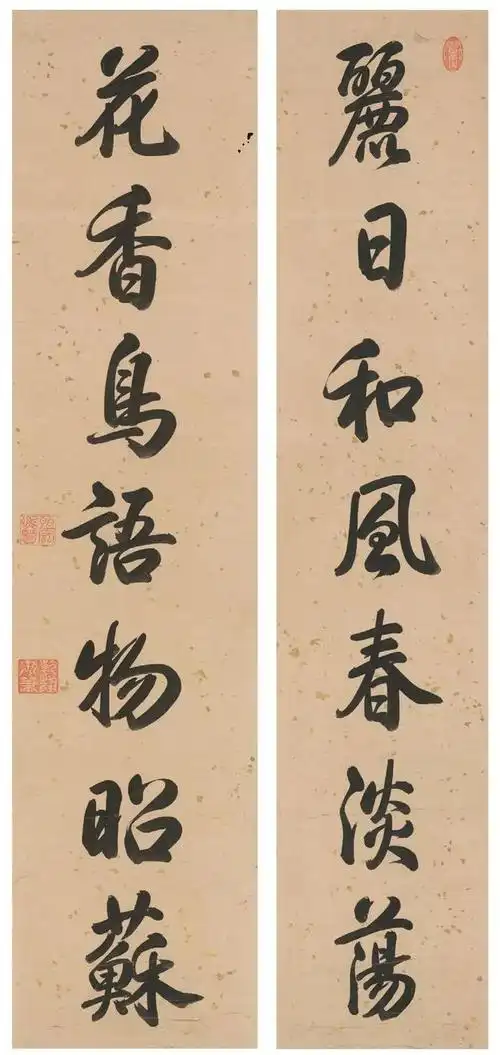 麗日和風春淡蕩
花香鳥語物昭蘇